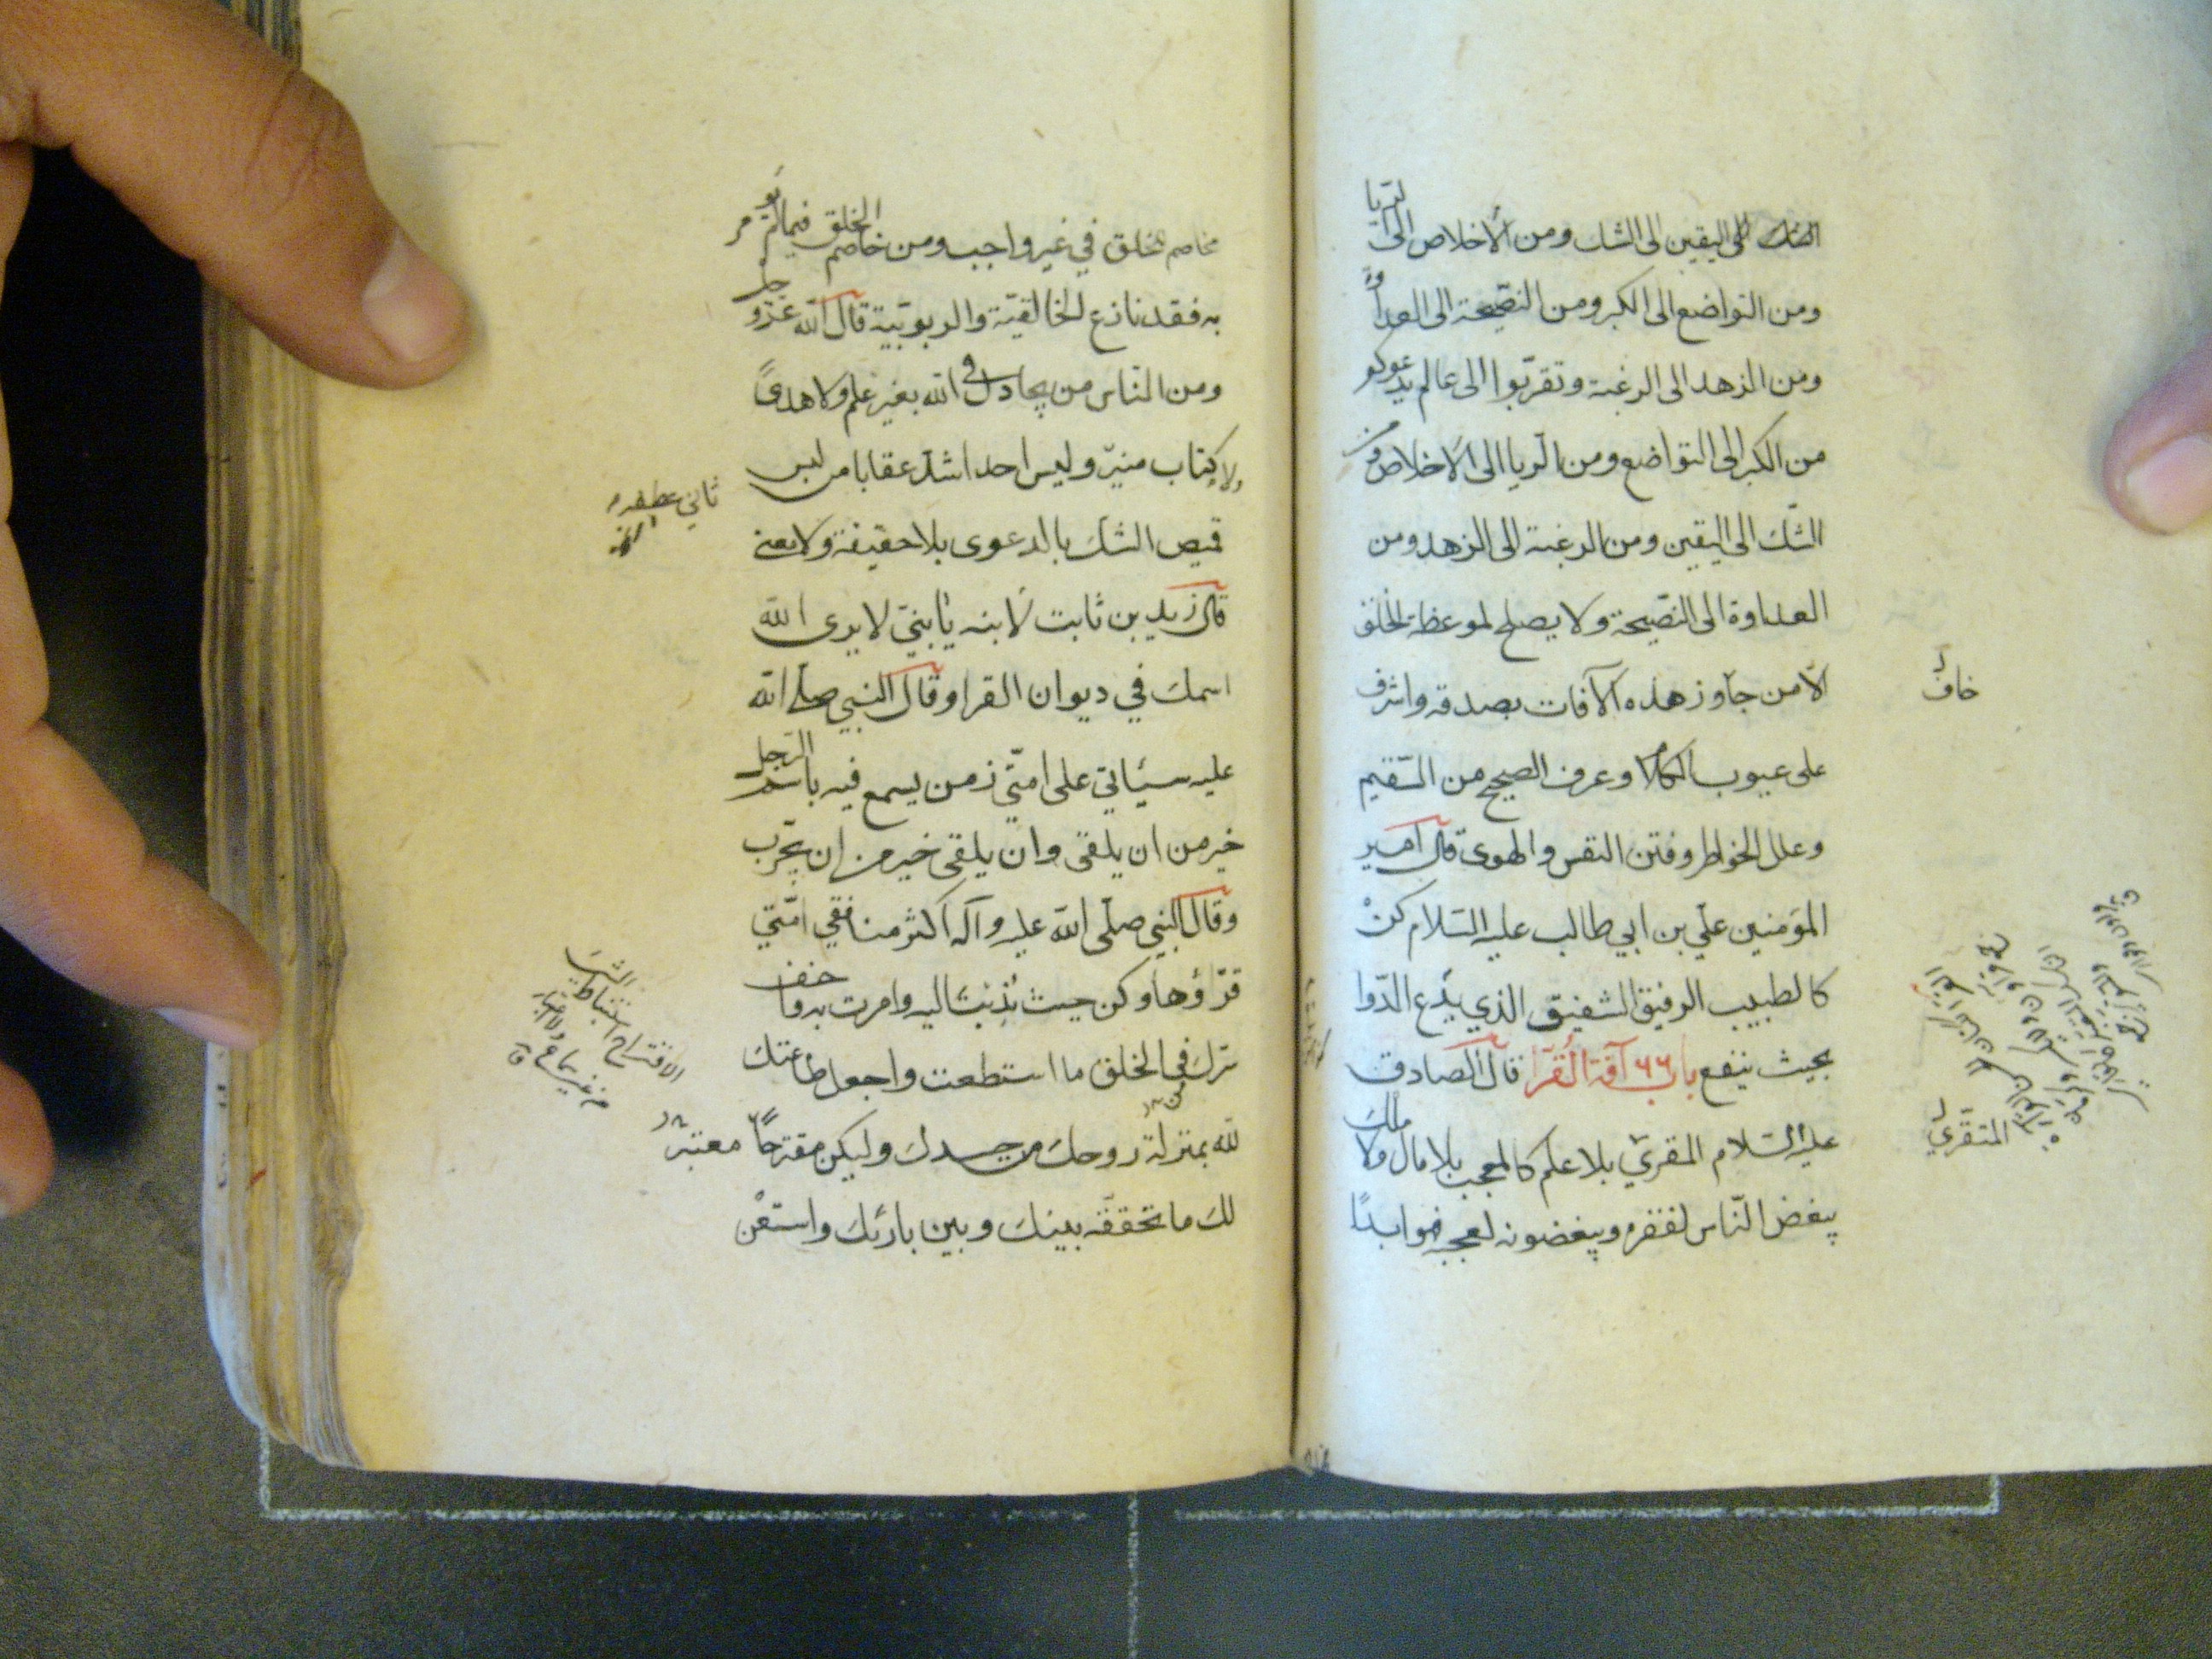 اليقين الى الشك ومن الأخلاص الى الريا
ومن التواضع الى الكبر ومن النصيحة الى العداوة
ومن الزهد الى الرغبة وتقربوا الى عالم يدعوكم
من الكبر الى التواضع ومن الريا الى الاخلاص ومن
الشك الى اليقين ومن الرغبة الى الزهد ومن
العداوة الى النصيحة ولا يصلح لموعظة الخلق
الا من جاوز هذه الآفات بصدقه واشرف
خاف
على عيوب الكلام وعرف الصحيح من السقيم
وعلل الخواطر وفتن النفس والهوى قال امير
المؤمنين علي بن ابي طالب عليه السلام كن
كالطبيب الرفيق الشفيق الذي يدع الدوا
بحيث ينفع باب ٦٦ آفة القرآ قال الصادق
عليه السلام المقري بلا علم كالمعجب بلا مال ولا ملك
المتقري
يبغض الناس لفقره ويبغضونه لعجبه فهو ابدًا
مخاصم للخلق في غير واجب ومن خاصم الخلق فيما لم يؤمر
به فقد نازع الخالقية والربوبية قال الله عز وجل
ومن الناس من يجادل في الله بغير علم ولا هدىً
ولا كتاب منير وليس احد اشد عقابا من لبس
ثاني عطفه
قميص النسك بالدعوى بلا حقيقة ولا معنى
قال زيد بن ثابت لابنه يا بني لا يرى الله
اسمك في ديوان القرا وقال النبي صلى الله
عليه سيأتي على امتي زمن يسمع فيه باسم الرجل
خير من ان يلقى وان يلقى خير من ان يجرب
وقال النبي صلى الله عليه وآله اكثر منافقي امتي
قرّاؤها وكن حيث ندبت اليه وامرت به واخف
سرك في الخلق ما استطعت واجعل طاعتك
لله بمنزلة روحك من جسدك وليكن مقترحاً معتبر
لك ما تحققه بينك وبين بارئك واستعن